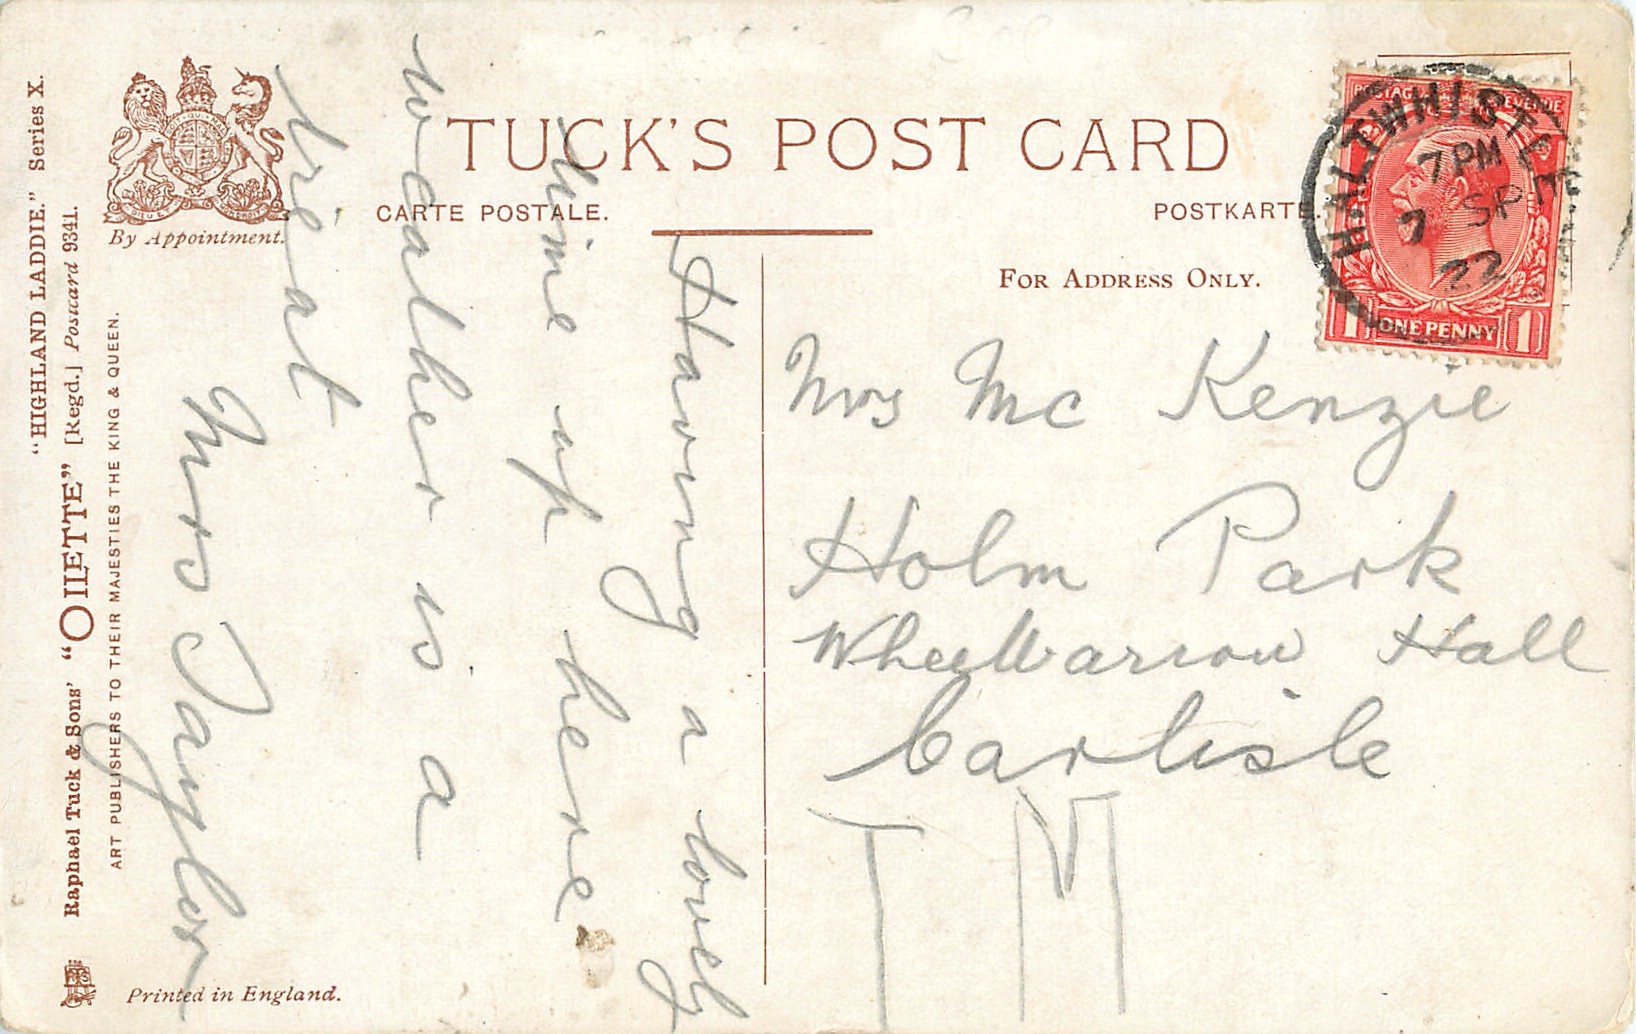 "HIGHLAND LADDIE." Series X.
Raphael Tuck & Sons' "OILETTE" [Regd.] Postcard 9341.
ART PUBLISHERS TO THEIR MAJESTIES THE KING & QUEEN.
By Appointment.
Printed in England.
TUCK'S POST CARD
CARTE POSTALE.
POSTKARTE
FOR ADDRESS ONLY.
POSTAGE REVENUE
ONE PENNY
1 1
HALTWHISTLE
7 PM
7 SP
22
Having a lovely
time up here
weather is a
treat
Mrs Taylor
Mrs Mc Kenzie
Holm Park
Hall
Carlisle
T M